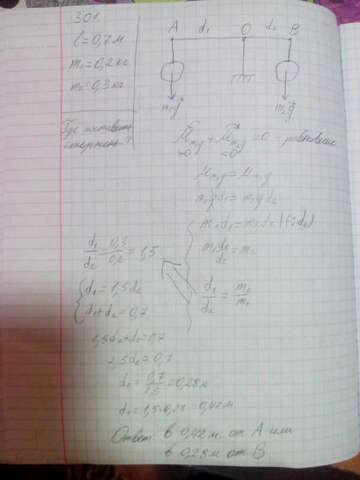 301.
l = 0,7 м
m₁ = 0,2 кг
m₂ = 0,3 кг
Где
A d₁ O d₂ B
m₁g m₂g
Mm₁g + Mm₂g = 0 - равновесие
>0 <0
Mm₁g = Mm₂g
m₁gd₁ = m₂gd₂
m₁d₁ = m₂d₂ |(:d₂)
m₁d₁/d₂ = m₂
d₁/d₂ = m₂/m₁
d₁/d₂ = 0,3/0,2 = 1,5
d₁ = 1,5d₂
d₁ + d₂ = 0,7
1,5d₂ + d₂ = 0,7
2,5d₂ = 0,7
d₂ = 0,7/2,5 = 0,28 м
d₁ = 1,5·0,28 = 0,42 м
Ответ: в 0,42 м. от A или
в 0,28 м от B.